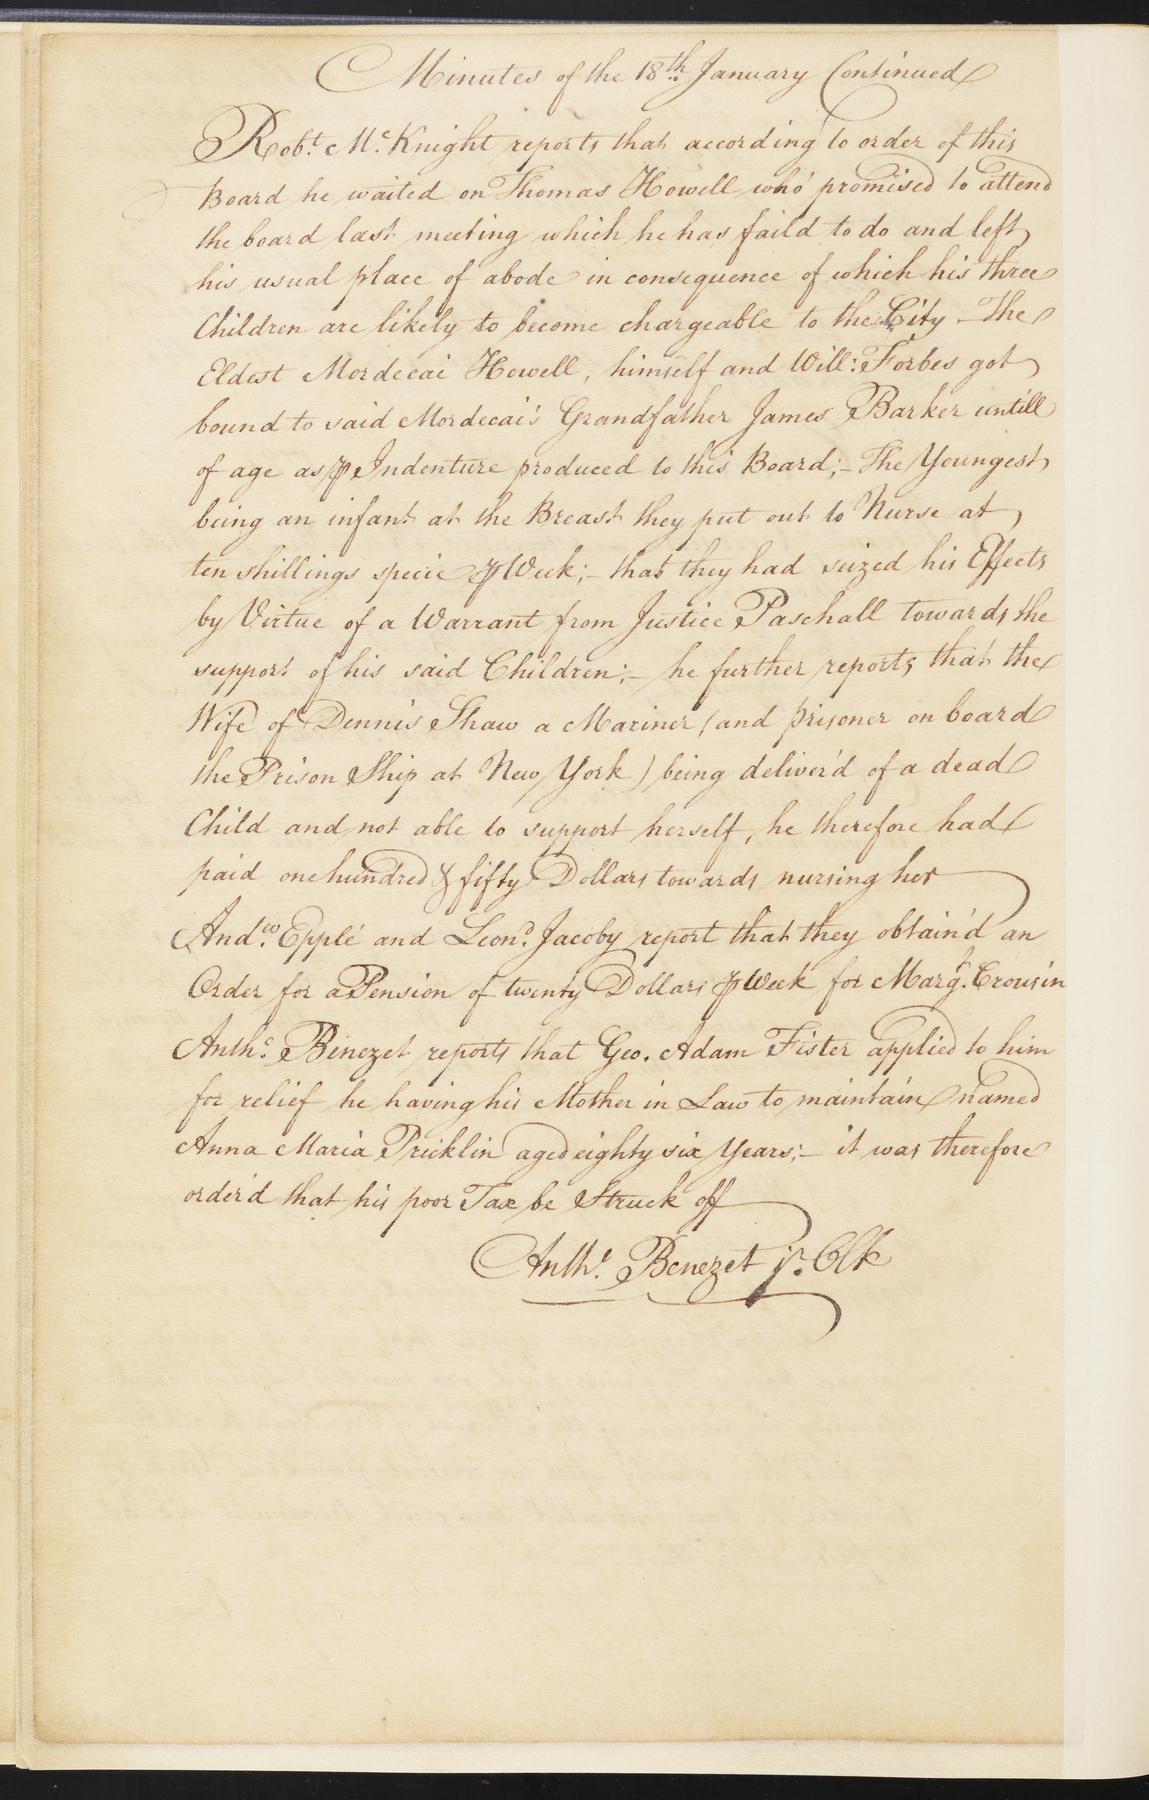 Minutes of the 18th January Continued
Robt. Mc.Knight reports that according to order of this
Board he waited on Thomas Howell who promised to attend
the board last meeting which he has faild to do and left
his usual place of abode in consequence of which his three
Children are likely to become chargeable to the City - The
Eldest Mordecai Howell, himself and Will: Forbes got
bound to said Mordecai's Grandfather James Barker untill
of age as ⅌ Indenture produced to this Board;- The Youngest
being an infant at the Breast they put out to Nurse at
ten shillings specie ⅌ Week;- that they had seized his Effects
by Virtue of a Warrant from Justice Paschall towards the
support of his said Children;- he further reports that the
Wife of Dennis Shaw a Mariner (and prisoner on board
the Prison Ship at New York) being deliver'd of a dead
Child and not able to support herself, he therefore had
paid one hundred & fifty Dollars towards nursing her
Andw. Epplé and Leond. Jacoby report that they obtain'd an
Order for a Pension of twenty Dollars ⅌ Week for Margt. Crousin
Anthy. Benezet reports that Geo. Adam Fister applied to him
for relief he having his Mother in Law to maintain named
Anna Maria Pricklin aged eighty six Years;- it was therefore
order'd that his poor Tax be Struck off
Anthy. Benezet jr. Clk